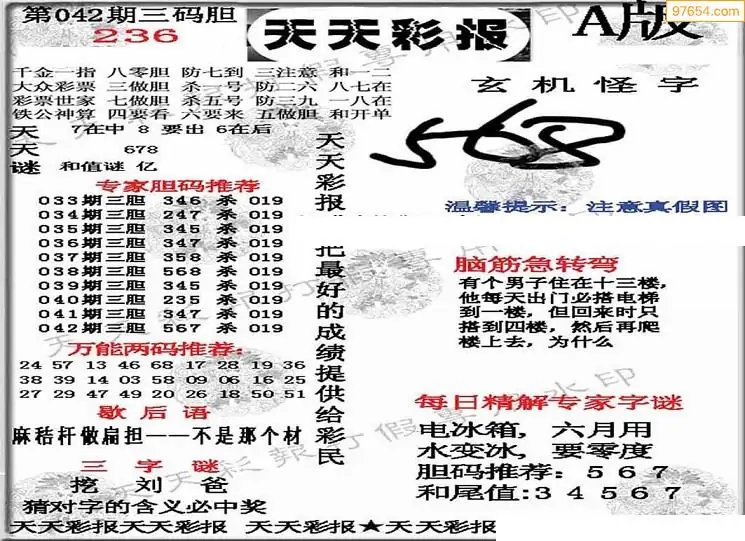 第042期三码胆
236
天天彩报
A版
97654.com
千金一指 八零胆 防七到 三注意 和一二
大众彩票 三做胆 杀一号 防二六 八七在
彩票世家 七做胆 杀五号 防三九 一八在
铁公神算 四要看 六要来 五做胆 和开单
天 7在中 8 要出 6在后
天 678
谜 和值谜 亿
玄机怪字
568
温馨提示：注意真假图
专家胆码推荐
033期三胆 346 杀 019
034期三胆 247 杀 019
035期三胆 345 杀 019
036期三胆 347 杀 019
037期三胆 358 杀 019
038期三胆 568 杀 019
039期三胆 345 杀 019
040期三胆 235 杀 019
041期三胆 347 杀 019
042期三胆 567 杀 019
万能两码推荐：
24 57 13 46 68 17 28 19 36
38 39 14 03 58 09 06 16 25
27 29 47 49 20 26 18 50 51
歇后语
麻秸杆做扁担——不是那个材
三字谜
挖 刘 爸
猜对字的含义必中奖
天天彩报
把最好的成绩提供给彩民
脑筋急转弯
有个男子住在十三楼，
他每天出门必搭电梯
到一楼，但回来时只
搭到四楼，然后再爬
楼上去，为什么
每日精解专家字谜
电冰箱，六月用
水变冰，要零度
胆码推荐：567
和尾值:34567
天天彩报天天彩报 天天彩报★天天彩报